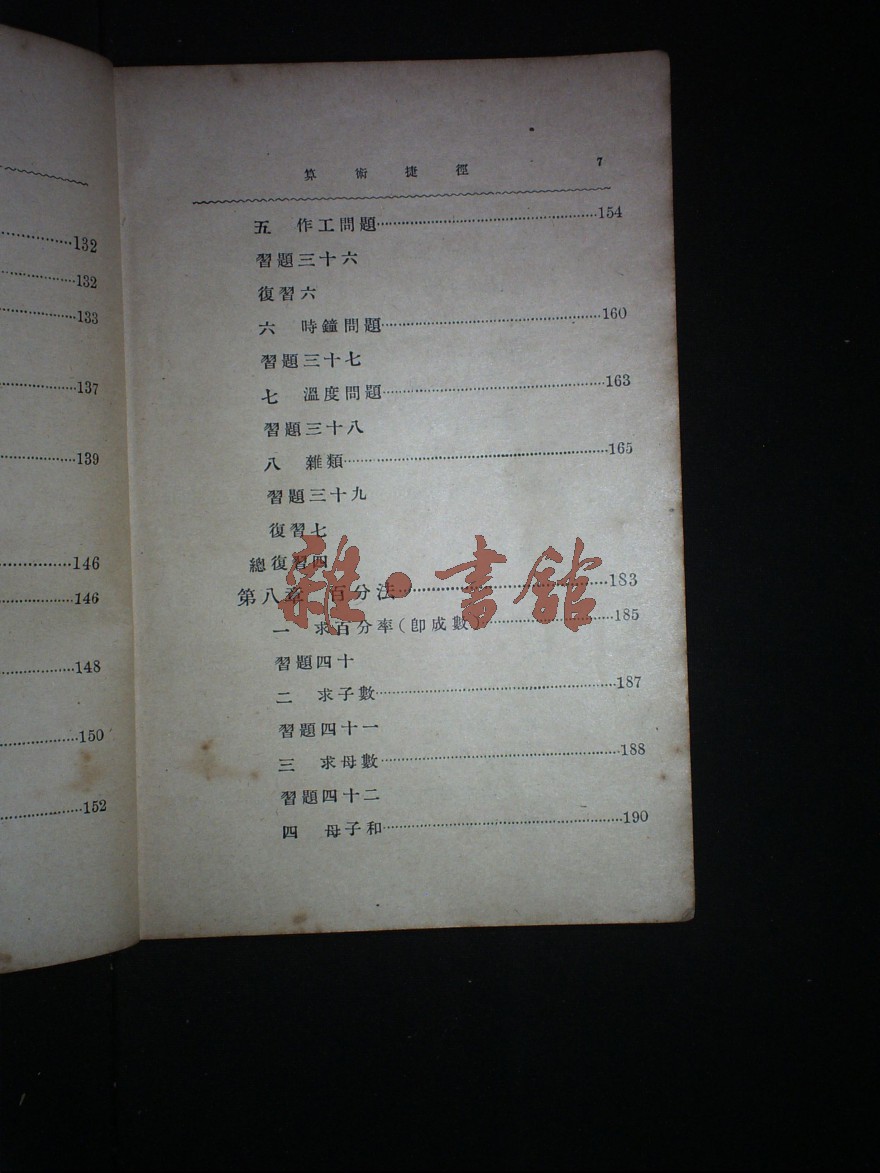 132
132
133
137
139
146
146
148
150
152
算術捷徑 7
五 作工問題 154
習題三十六
復習六
六 時鐘問題 160
習題三十七
七 溫度問題 163
習題三十八
八 雜類 165
習題三十九
復習七
總復習四
第八章 百分法 183
一 求百分率(卽成數) 185
習題四十
二 求子數 187
習題四十一
三 求母數 188
習題四十二
四 母子和 190
雜·書館